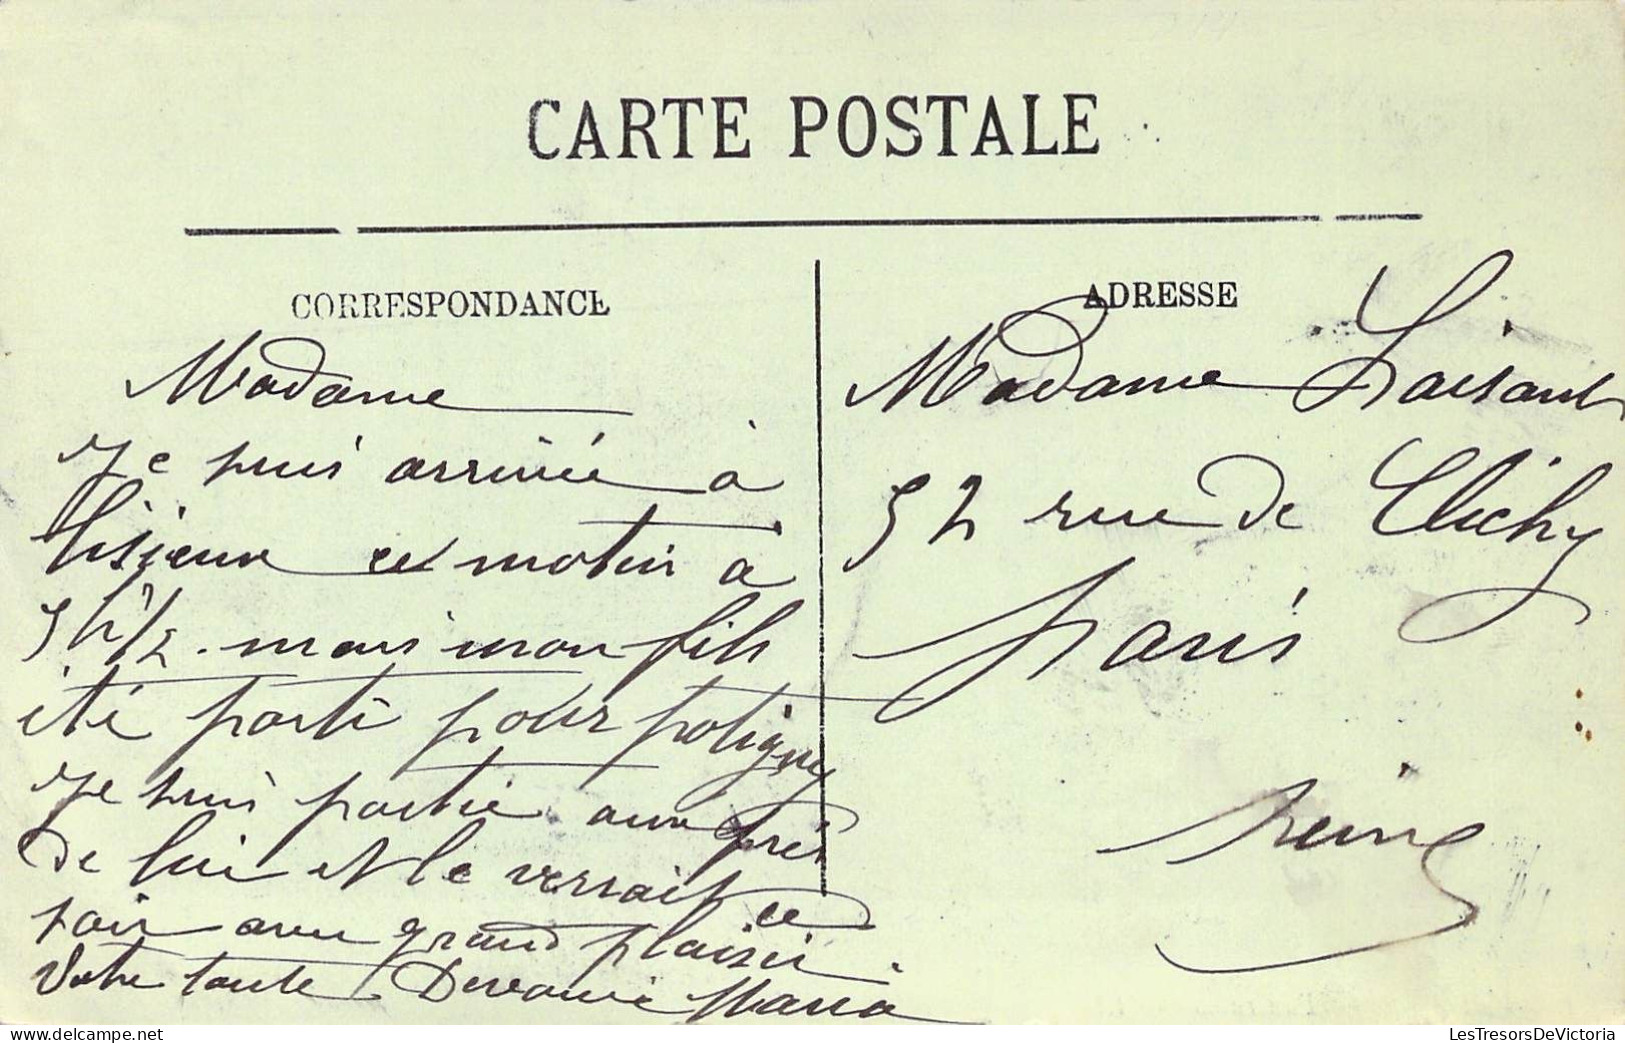 CARTE POSTALE
CORRESPONDANCE
Madame
Je suis arrivée à
lisieux ce matin à
5 h 1/2. mais mon fils
été parti pour potigny
Je suis partie aux près
de lui et le verrait ce
soir avec grand plaisir.
Votre toute Devouée Maria
ADRESSE
Madame Loisant
52 rue de Clichy
Paris
Seine
LesTresorsDeVictoria